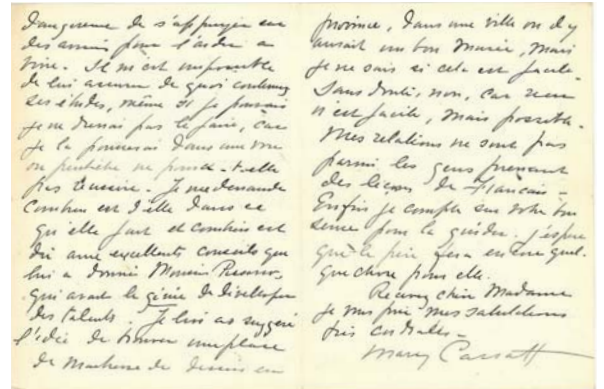 dangereux de s'appuyer sur
des amis pour l'aider a
vivre. Il m'est impossible
de lui assurer de quoi continuer
ses études, même si je pouvais
je ne devrais pas le faire, car
je la pousserai dans une voie
ou peutêtre ne pourra-t-elle
pas réussir. Je me demande
Combien est d'elle dans ce
qu'elle fait et combien est
du aux excellents conseils que
lui a donnés Monsieur Pissarro,
qui avait le génie de développer
des talents. Je lui ai suggéré
l'idée de trouver une place
de Maitresse de dessin en
province, dans une ville ou il y
aurait un bon Musée, mais
je ne sais si cela est facile.
Sans doute, non, car rien
n'est facile, mais possible.
Mes relations ne sont pas
parmi les gens prenant
des leçons de Français.
Enfin je compte sur votre bon
sens pour la guider. J'espère
que le père fera encore quel-
que chose pour elle.
Recevez chère Madame
je vous prie mes salutations
très cordiales.
Mary Cassatt